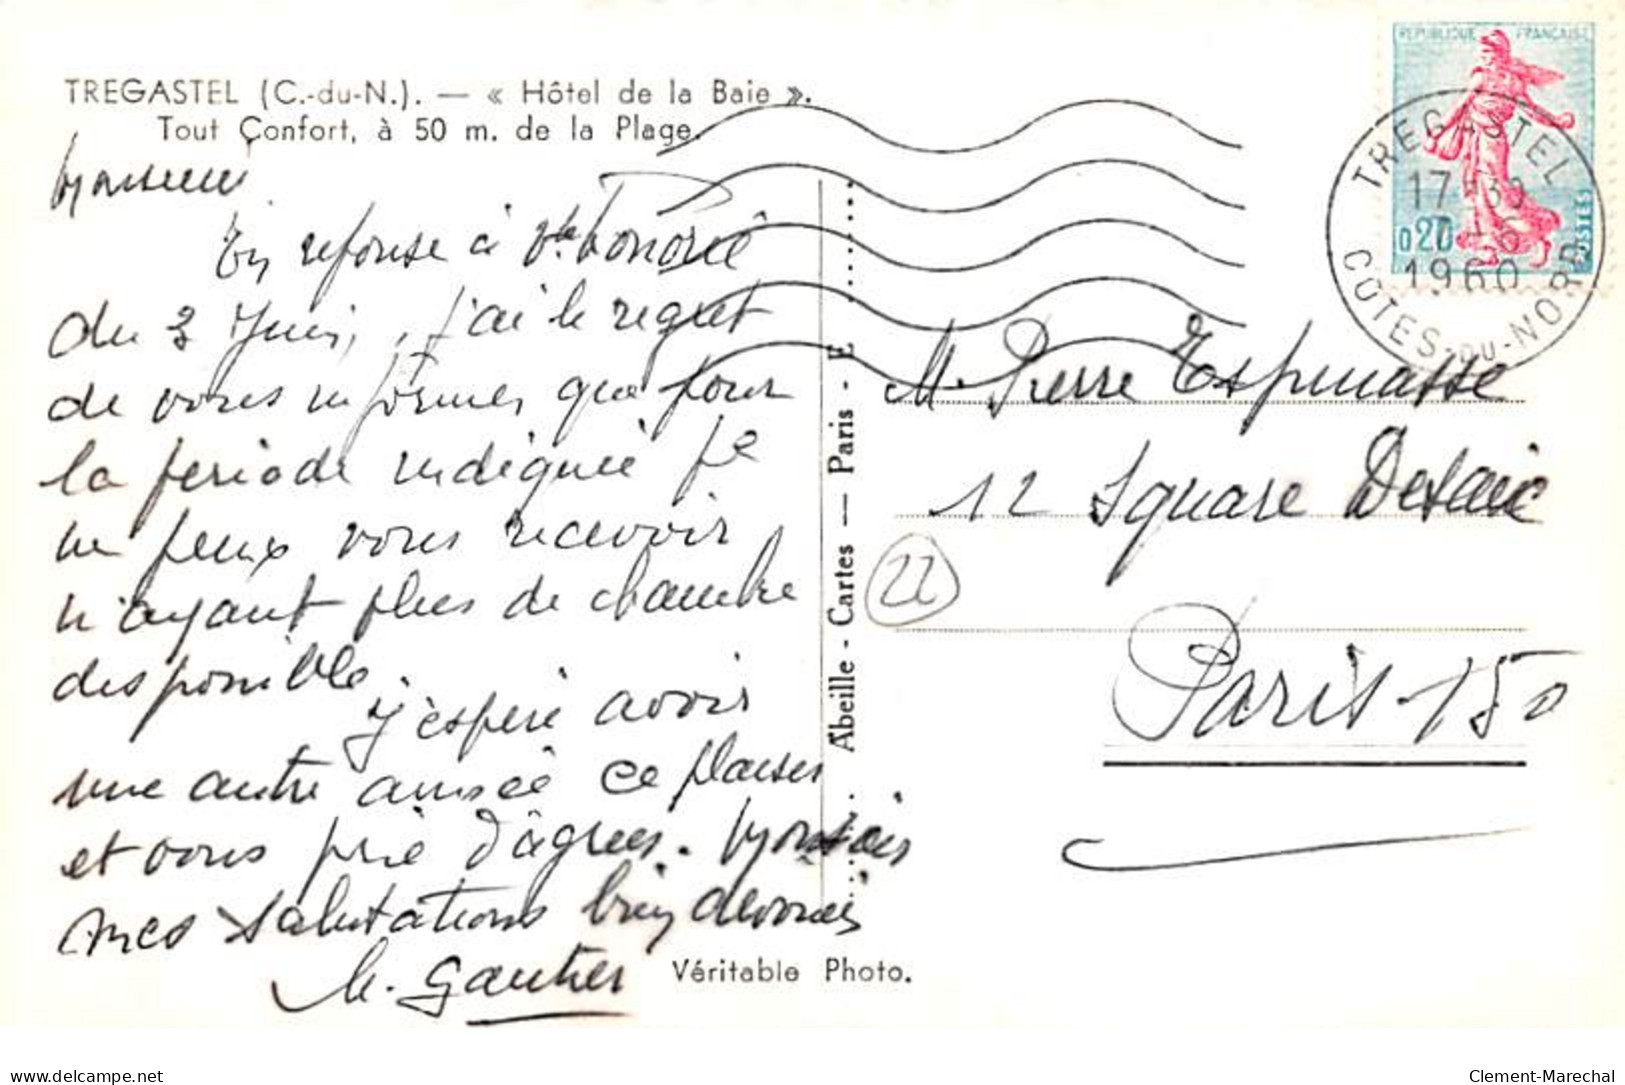 TREGASTEL (C.-du-N.). — « Hôtel de la Baie ».
Tout Confort, à 50 m. de la Plage.
Monsieur
En réponse à Vte honorée
du 3 Juin, j'ai le regret
de vous informer que pour
la période indiquée je
ne peux vous recevoir
n'ayant plus de chambre
disponible.
J'espère avoir
une autre année ce plaisir
et vous prie d'agréer. Monsieur
mes salutations bien dévouées
M. Gautier
Véritable Photo.
Abeille - Cartes — Paris - E
REPUBLIQUE FRANÇAISE
0,20
POSTES
TREGASTEL
17 30
6
1960
CÔTES-DU-NORD
M. Pierre Espinasse
12 Square Desaix
22
Paris-15e
delcampe.net
Clement-Marechal